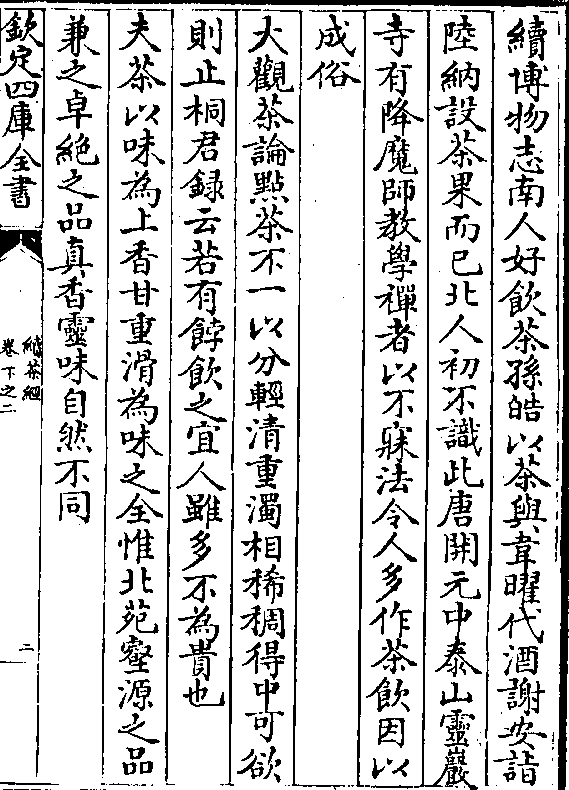 續博物志南人好飲茶孫皓以茶與韋曜代酒謝安詣
陸納設茶果而已北人初不識此唐開元中泰山靈巖
寺有降魔師教學禪者以不寐法令人多作茶飲因以
成俗
大觀茶論點茶不一以分輕清重濁相稀稠得中可欲
則止桐君録云若有餑飲之宜人雖多不為貴也
夫茶以味為上香甘重滑為味之全惟北苑壑源之品
兼之卓絶之品真香靈味自然不同
欽定四庫全書
續茶經
卷下之二
二